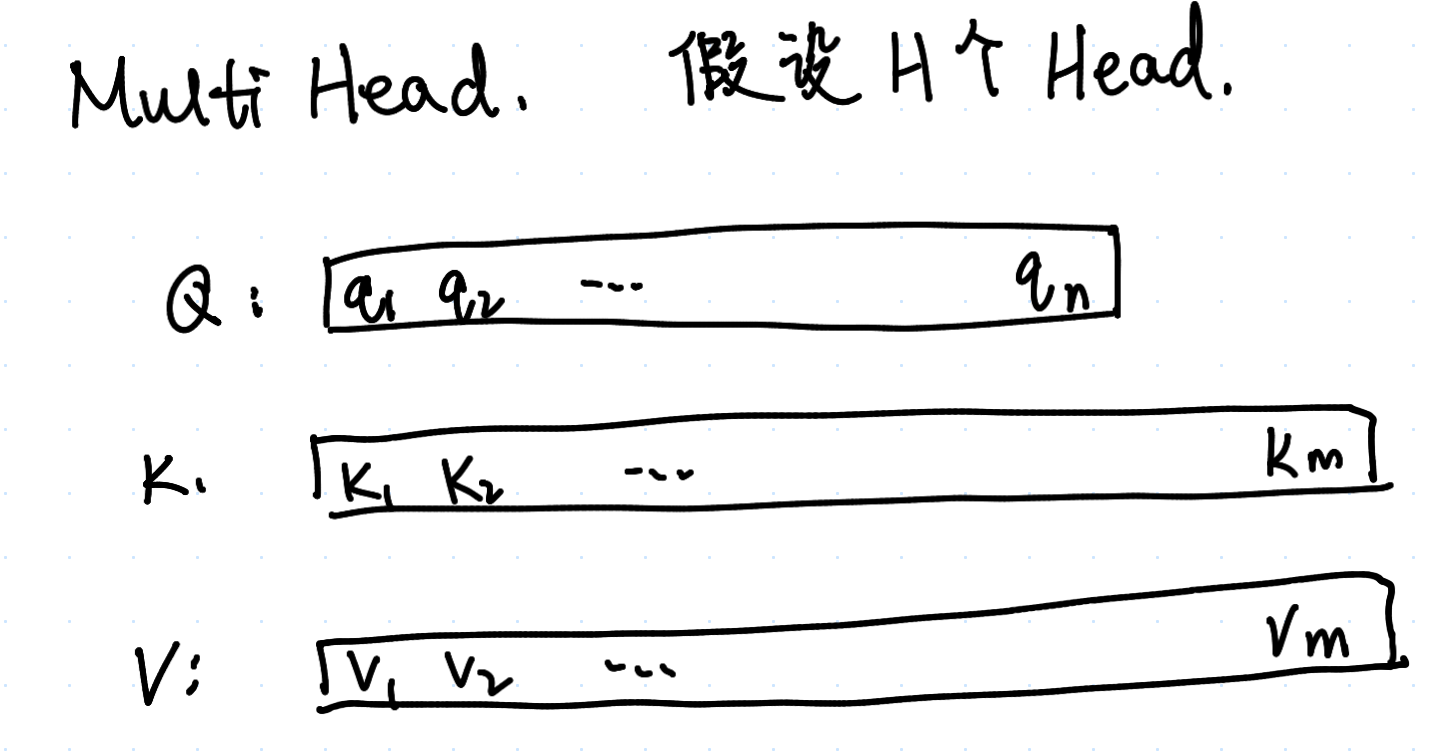 Multi Head. 假设 H个 Head.
Q: q₁ q₂ ... qₙ
K. K₁ K₂ ... Kₘ
V: V₁ V₂ ... Vₘ